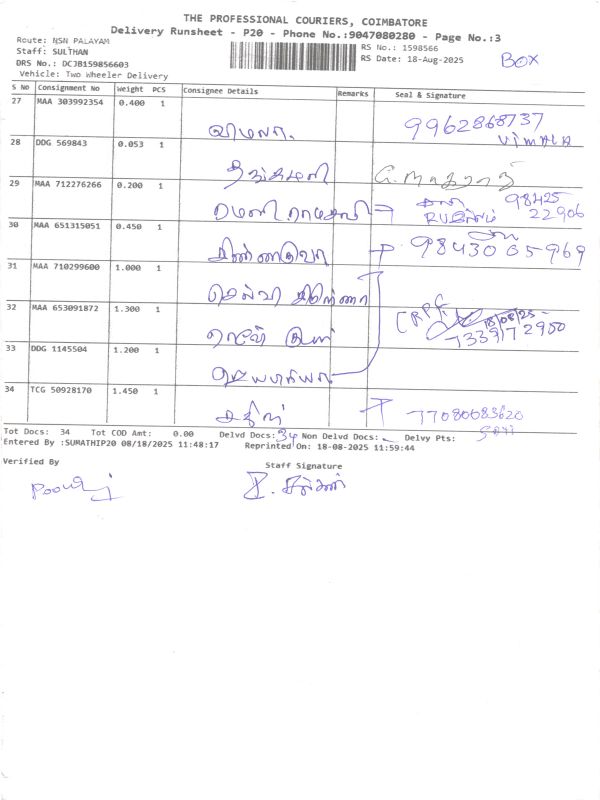 THE PROFESSIONAL COURIERS, COIMBATORE
Delivery Runsheet - P20 - Phone No.:9047080280 - Page No.:3
Route: NSN PALAYAM
RS No.: 1598566
Staff: SULTHAN
RS Date: 18-Aug-2025
BOX
DRS No.: DCJB159856603
Vehicle: Two Wheeler Delivery
S No Consignment No Weight PCS Consignee Details Remarks Seal & Signature
27 MAA 303992354 0.400 1
விமலா. 9962868737
VIMALA
28 DDG 569843 0.053 1
தங்கமணி
29 MAA 712276266 0.200 1
98425
22906
30 MAA 651315051 0.450 1
9843065969
31 MAA 710299600 1.000 1
செல்வி
32 MAA 653091872 1.300 1
CRPF
18/08/25
7339172900
33 DDG 1145504 1.200 1
34 TCG 50928170 1.450 1
Tot Docs: 34 Tot COD Amt: 0.00 Delvd Docs: 34 Non Delvd Docs: Delvy Pts:
Entered By :SUMATHIP20 08/18/2025 11:48:17 Reprinted On: 18-08-2025 11:59:44
Verified By
Staff Signature